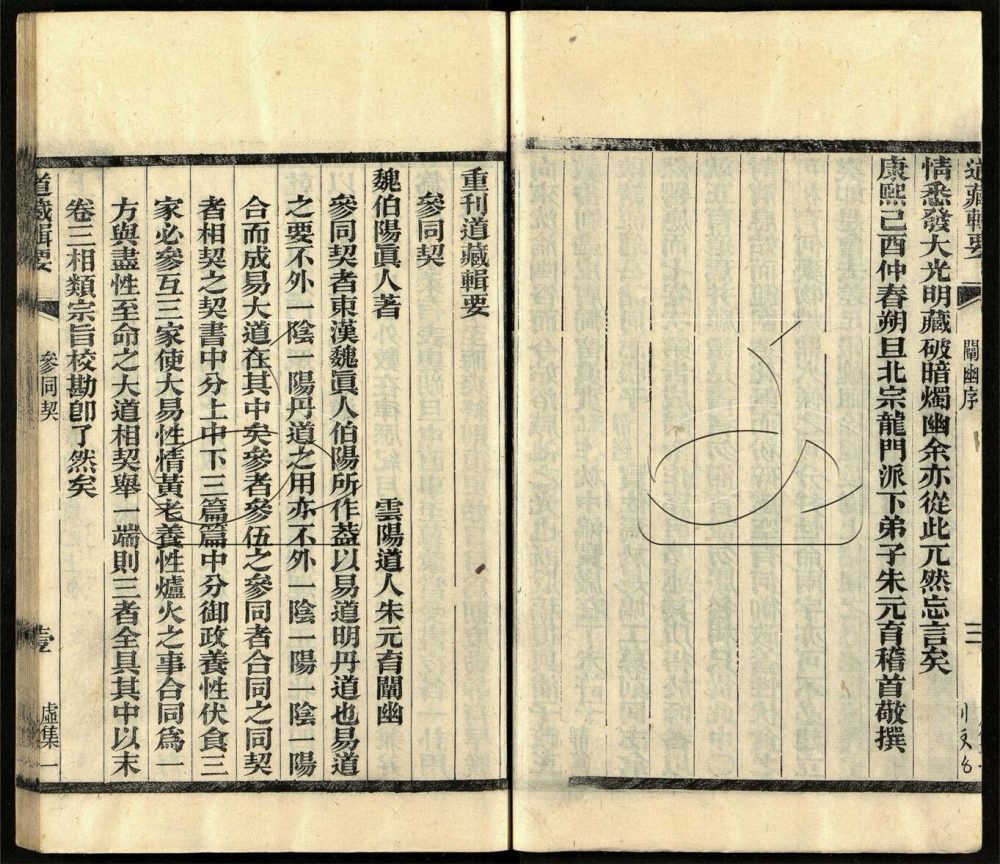 道藏輯要 闡幽序 三
情悉發大光明藏破暗燭幽余亦從此兀然忘言矣
康熙己酉仲春朔旦北宗龍門派下弟子朱元育稽首敬撰
重刊道藏輯要
參同契
魏伯陽眞人著 雲陽道人朱元育闡幽
參同契者東漢魏眞人伯陽所作葢以易道明丹道也易道
之要不外一陰一陽丹道之用亦不外一陰一陽一陰一陽
合而成易大道在其中矣參者參伍之參同者合同之同契
者相契之契書中分上中下三篇篇中分御政養性伏食三
家必參互三家使大易性情黃老養性爐火之事合同爲一
方與盡性至命之大道相契舉一端則三者全具其中以末
卷三相類宗旨校勘卽了然矣
道藏輯要 參同契 壹 虛集一